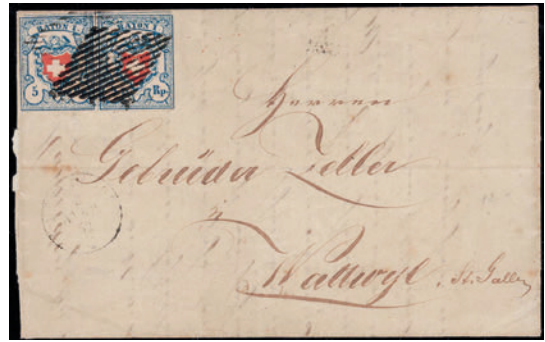 RAYON RAYON
5 Rp.
Herren
Gebrüder Zeller
Wattwyl, St. Gallen